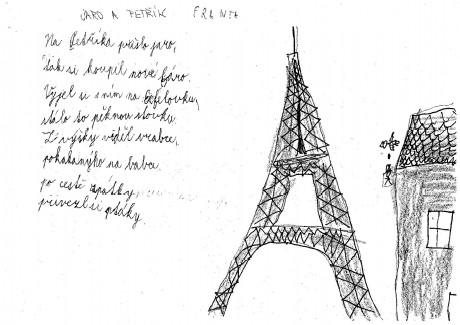 JARO A PETŘÍK FRANTA
Na Petříka přišlo jaro,
tak si koupil nové
Vyjel si s ním na
stálo to pěknou stovku.
Z výšky viděl vrabce,
na babce.
po cestě zpátky
přivezl si ptáky.